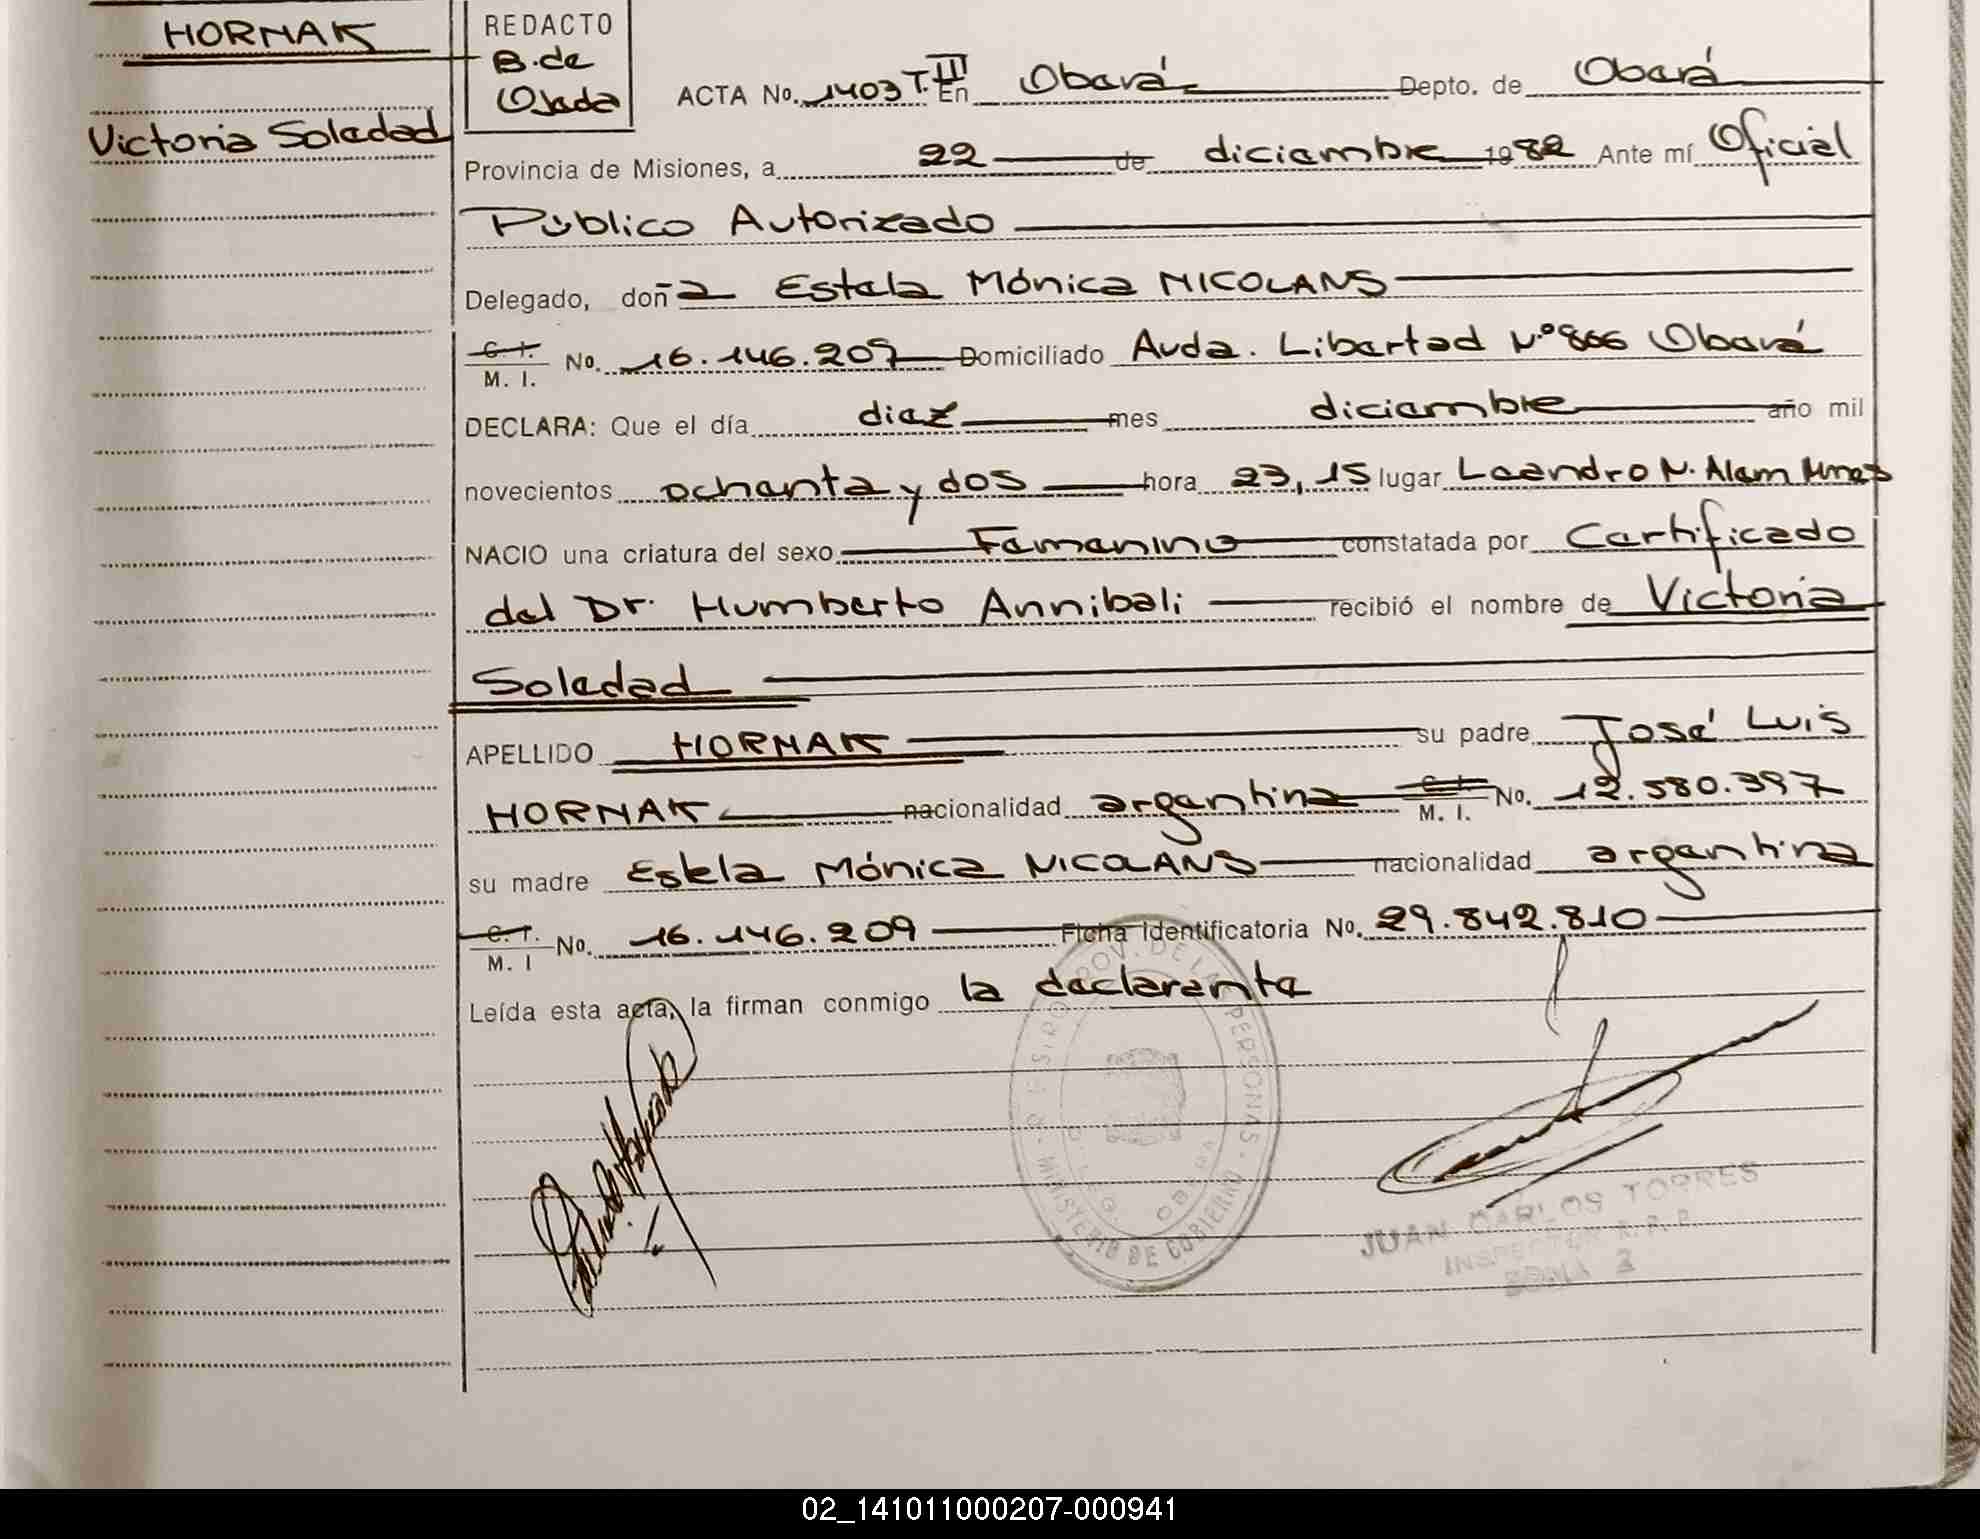 HORNAK
REDACTO
B. de
Ojeda
Victoria Soledad
ACTA No. 1403 T. III En Oberá Depto. de Oberá
Provincia de Misiones, a 22 de diciembre 1982 Ante mí Oficial
Público Autorizado
Delegado, doña Estela Mónica NICOLANS
C. I. M. I. No. 16.146.209 Domiciliado Avda. Libertad Nº 866 Oberá
DECLARA: Que el día diez mes diciembre año mil
novecientos ochenta y dos hora 23,15 lugar Leandro N. Alem Mnes
NACIO una criatura del sexo Femenino constatada por Certificado
del Dr. Humberto Annibali recibió el nombre de Victoria
Soledad
APELLIDO HORNAK su padre José Luis
HORNAK nacionalidad argentina C. I. M. I. No. 12.580.397
su madre Estela Mónica NICOLANS nacionalidad argentina
C. I. M. I No. 16.146.209 Ficha Identificatoria No. 29.842.810
Leída esta acta, la firman conmigo la declarante
PROV. DE LAS PERSONAS - MINISTERIO DE GOBIERNO
OBERA
JUAN CARLOS TORRES
INSPECTOR R.P.P.
ZONA 3
02_141011000207-000941